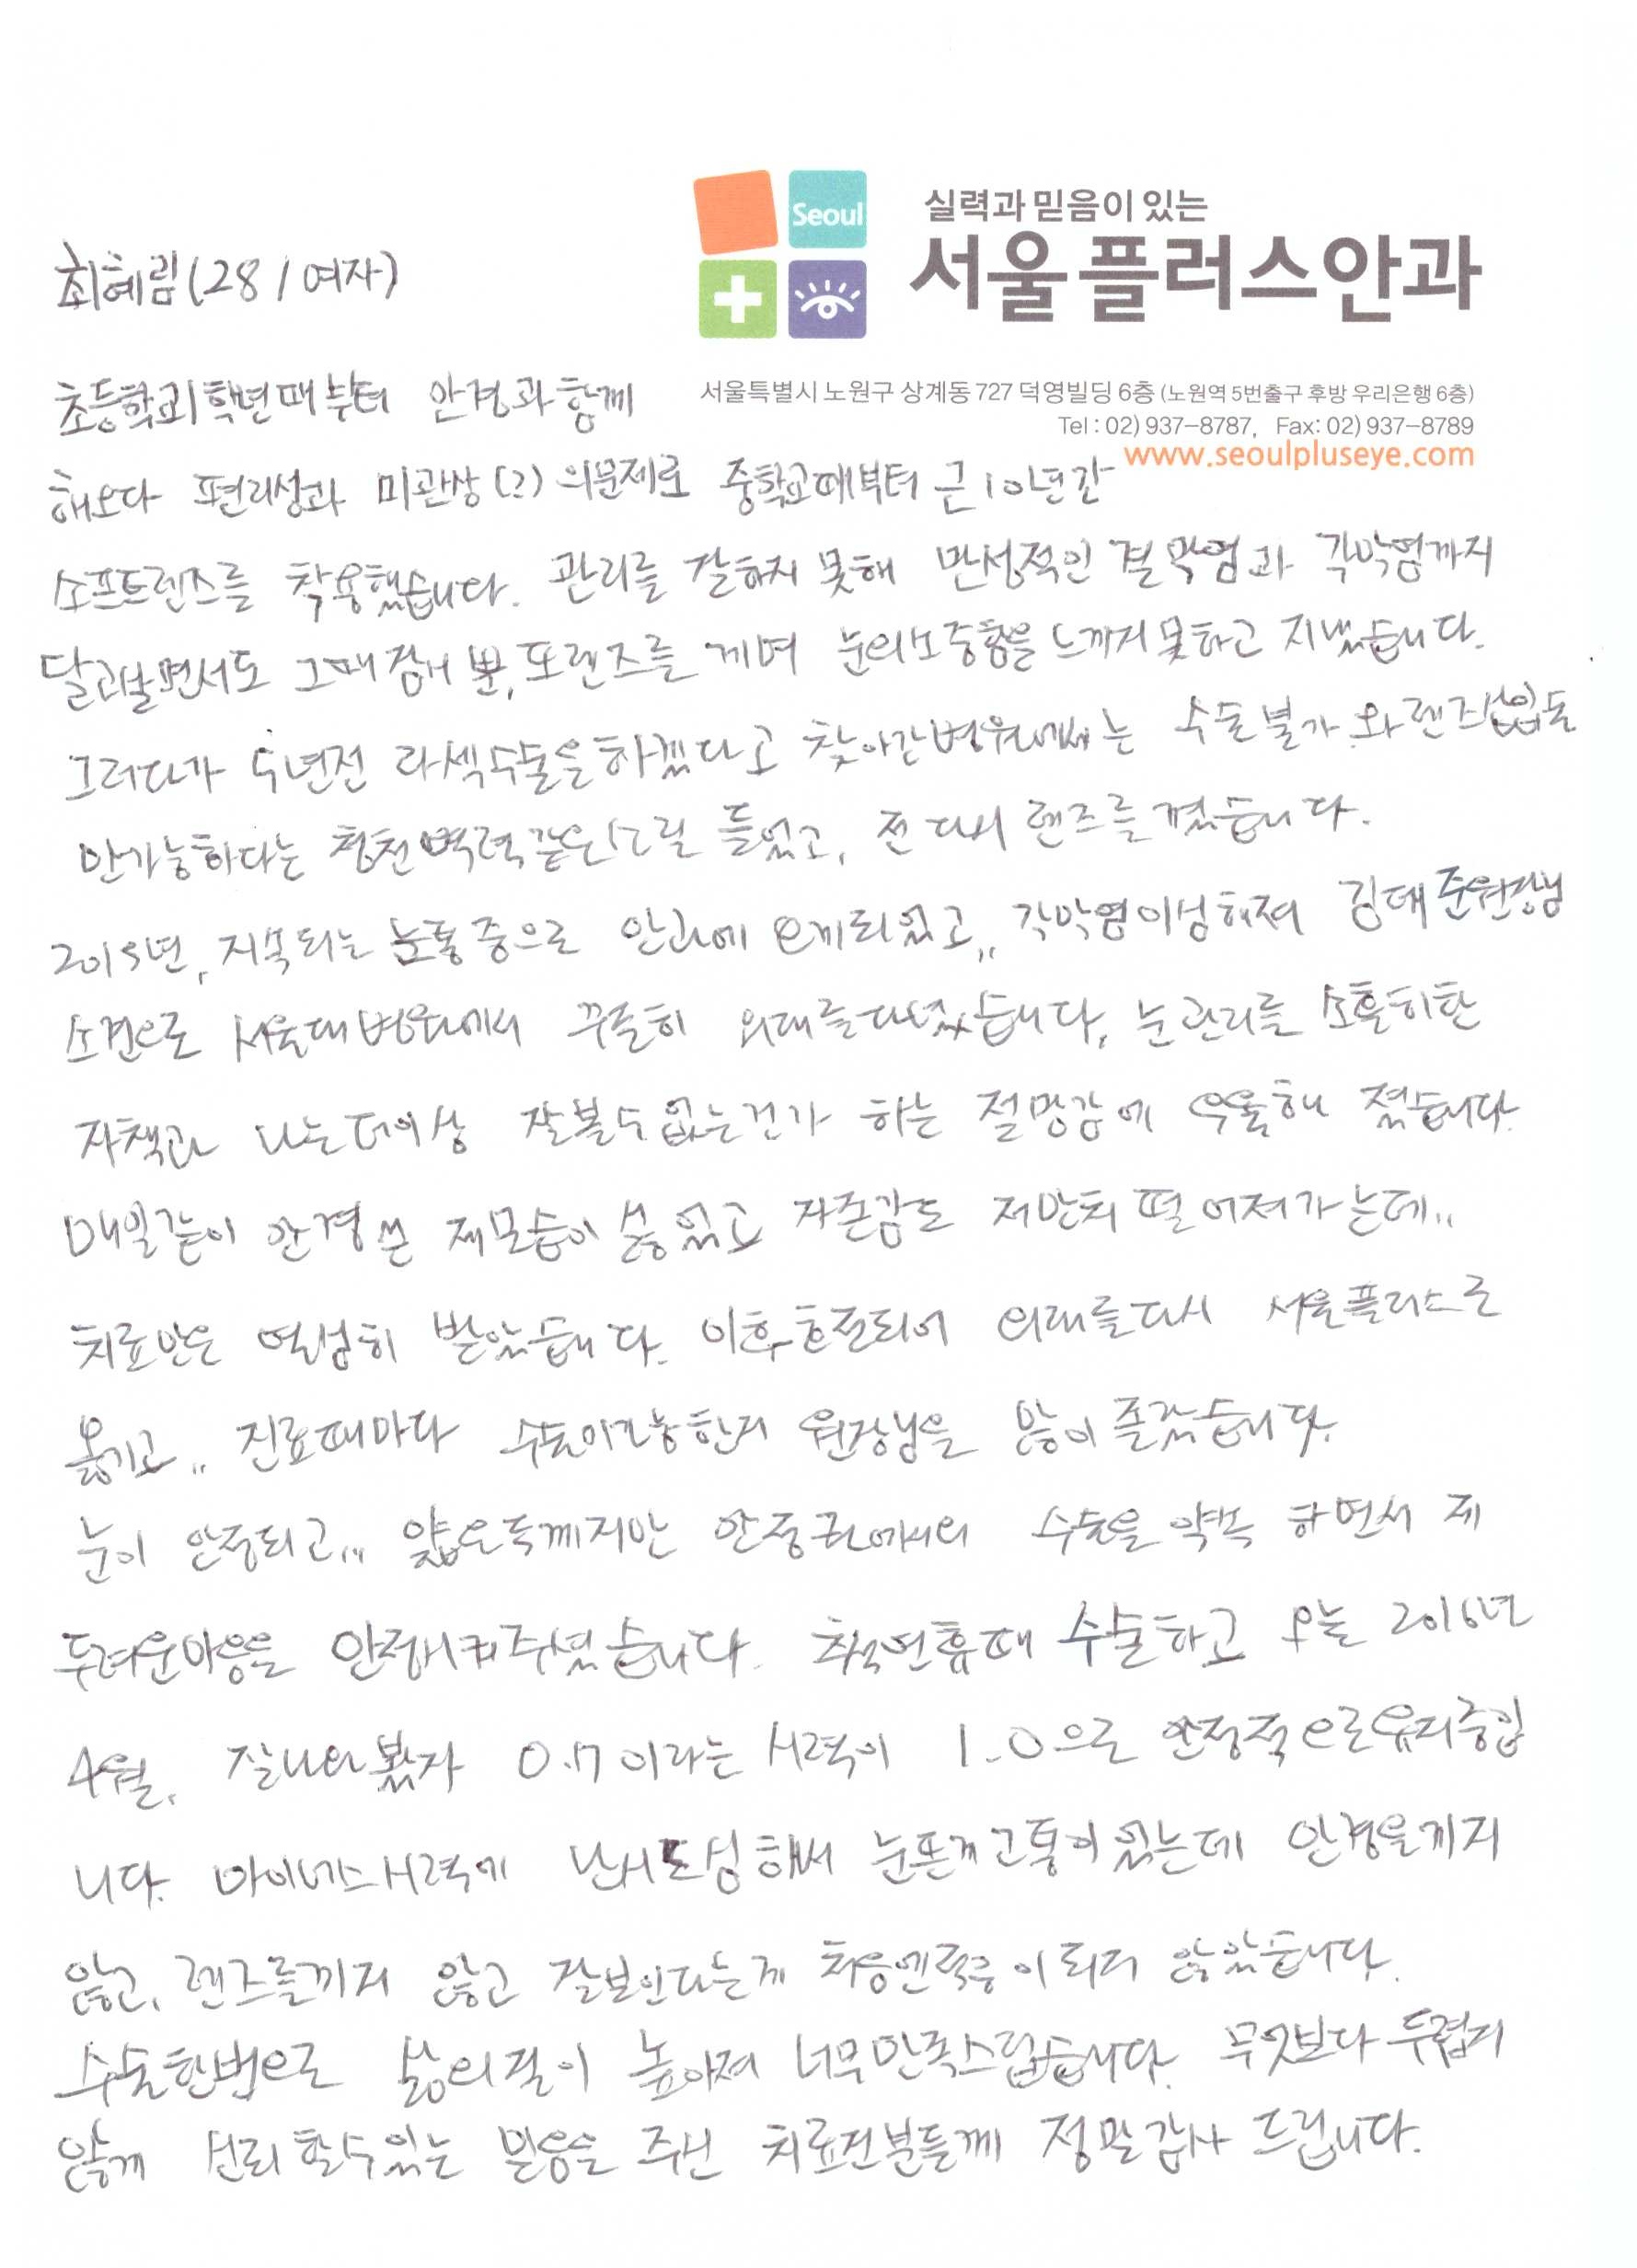 Seoul
실력과 믿음이 있는
서울플러스안과
최혜림(28/여자)
서울특별시 노원구 상계동 727 덕영빌딩 6층 (노원역 5번출구 후방 우리은행 6층)
Tel : 02) 937-8787, Fax: 02) 937-8789
www.seoulpluseye.com
초등학교 학년때부터 안경과 함께
해오다 편리성과 미관상(?)의문제로 중학교때부터 근 10년간
소프트렌즈를 착용했습니다. 관리를 잘하지 못해 만성적인 결막염과 각막염까지
달고살면서도 그때 잠시 뿐, 또렌즈를 끼며 눈의소중함을 느끼지못하고 지냈습니다.
그러다가 수년전 라섹수술을하겠다고 찾아간병원에서는 수술불가와 렌즈삽입도
안가능하다는 청천벽력같은소릴 들었고, 전 다시 렌즈를 꼈습니다.
2015년, 지속되는 눈통증으로 안과에 오게되었고,, 각막염이심해져 김태준원장님
소견으로 서울대병원에서 꾸준히 외래를다녔습니다. 눈관리를 소홀히한
자책과 나는더이상 잘볼수없는건가 하는 절망감에 우울해 졌습니다.
매일같이 안경쓴 제모습이 싫었고 자존감도 저만치 떨어져가는데..
치료만은 열심히 받았습니다. 이후호전되어 외래를다시 서울플러스로
옮기고.. 진료때마다 수술이가능한지 원장님을 많이 졸랐습니다.
눈이 안정되고... 얇은두께지만 안정권에서의 수술을 약속 하면서 제
두려운마음을 안정시켜주셨습니다. 추석연휴때 수술하고 오늘 2016년
4월. 잘나와봤자 0.7이라는 시력이 1.0으로 안정적으로유지중입
니다. 마이너스시력에 난시도심해서 눈뜨는게고통이었는데 안경을끼지
않고, 렌즈를끼지 않고 잘보인다는게 처음엔적응이되지 않았습니다.
수술한번으로 삶의질이 높아져 너무만족스럽습니다. 무엇보다 두렵지
않게 신뢰할수있는 믿음을 주신 치료진분들께 정말감사 드립니다.